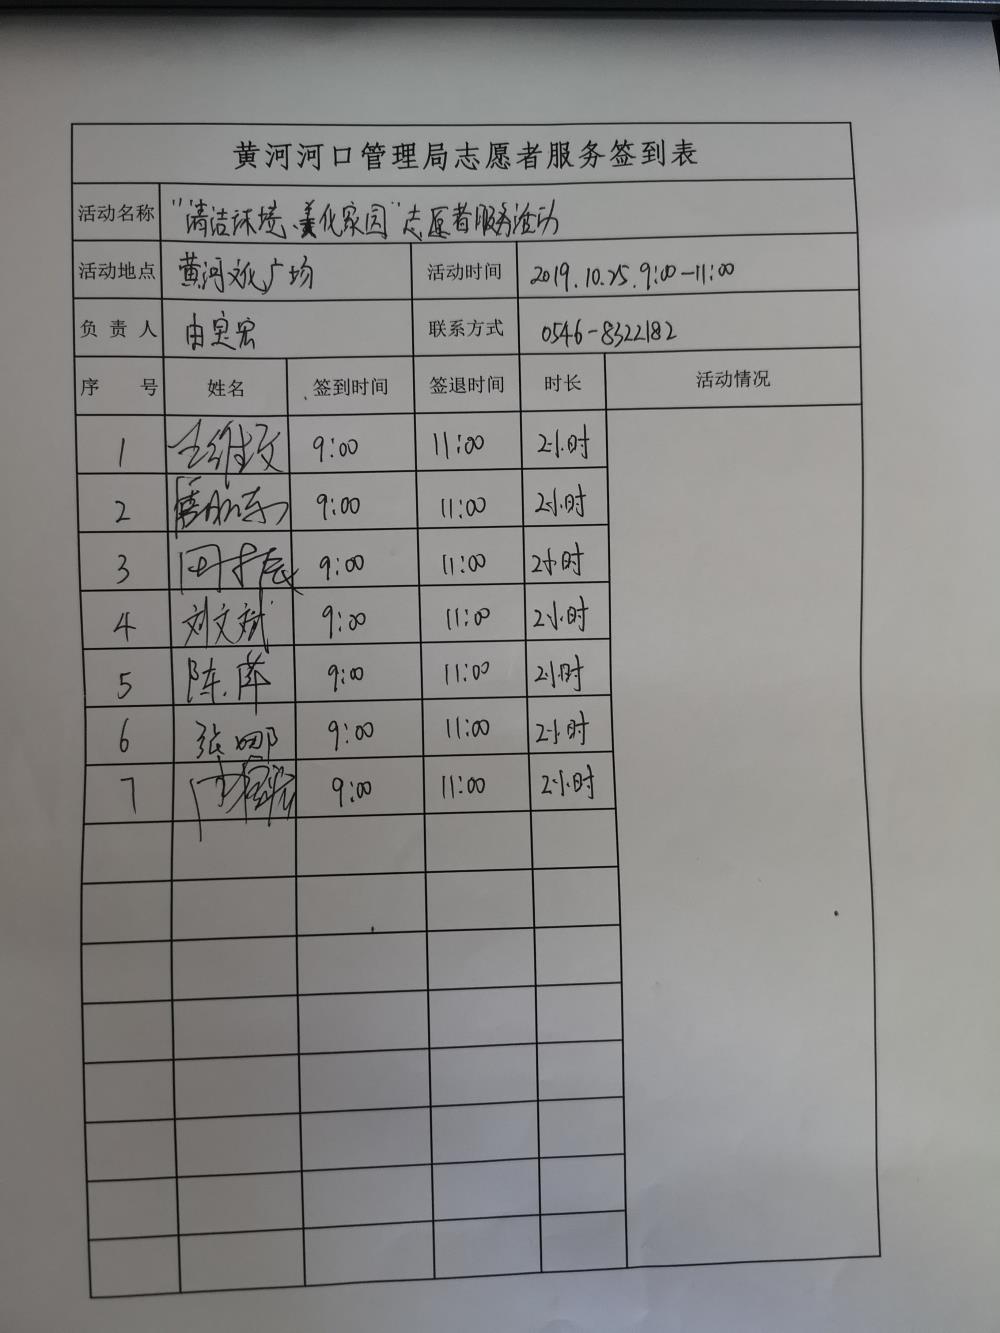 黄河河口管理局志愿者服务签到表
活动名称 "清洁环境、美化家园"志愿者服务活动
活动地点 黄河文化广场 活动时间 2019.10.25.9:00-11:00
负责人 由宝宏 联系方式 0546-8322182
序号 姓名 签到时间 签退时间 时长 活动情况
1 王维文 9:00 11:00 2小时
2 9:00 11:00 2小时
3 9:00 11:00 2小时
4 刘文斌 9:00 11:00 2小时
5 陈萍 9:00 11:00 2小时
6 张娜 9:00 11:00 2小时
7 9:00 11:00 2小时